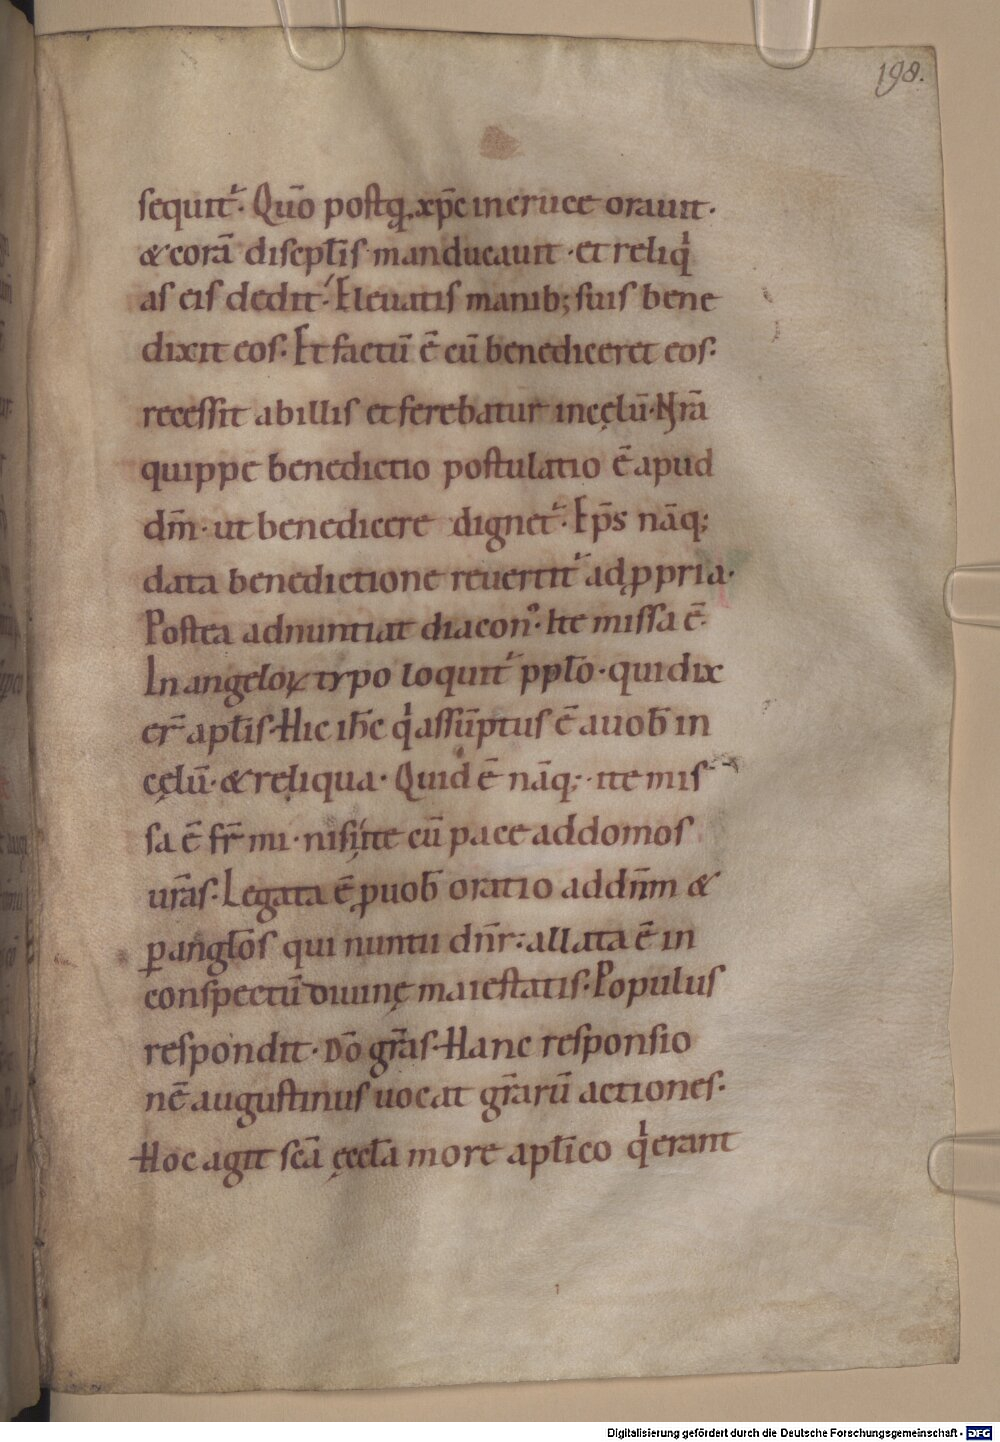 198.
sequit᷑. Quō postꝗ xp̄c incruce orauit.
&corā discipl̄is manducauit. et reliqͥ
as eis dedit. Eleuatis manib; suis bene
dixit eos. Et factū ē cū benediceret eos.
recessit abillis et ferebatur incęlū. Nr̄ā
quippe benedictio postulatio ē apud
dm̄. ut benedicere dignet᷑. Ep̄s nāq;
data benedictione reuertit᷑ adꝓpria.
Postea adnuntiat diacon᷒. Ite missa ē.
In angeloꝝ typo loquit᷑ ppl̄o. qui dix
er̄ apl̄is. Hic ih̄c qͥ assūptus ē auob̄ in
cęlū. & reliqua. Quid ē nāq;. ite mis
sa ē fr̄ mi. nisi ite cū pace addomos
ur̄as. Legata ē ꝓuob̄ oratio addn̄m &
ꝑ angl̄os qui nuntii dn̄r. allata ē in
conspectū diuinę maiestatis. Populus
respondit. Dō gr̄as. Hanc responsio
nē augustinus uocat gr̄arū actiones.
Hoc agit sc̄ā ęccl̄a more apl̄ico qͥ erant
Digitalisierung gefördert durch die Deutsche Forschungsgemeinschaft - DFG